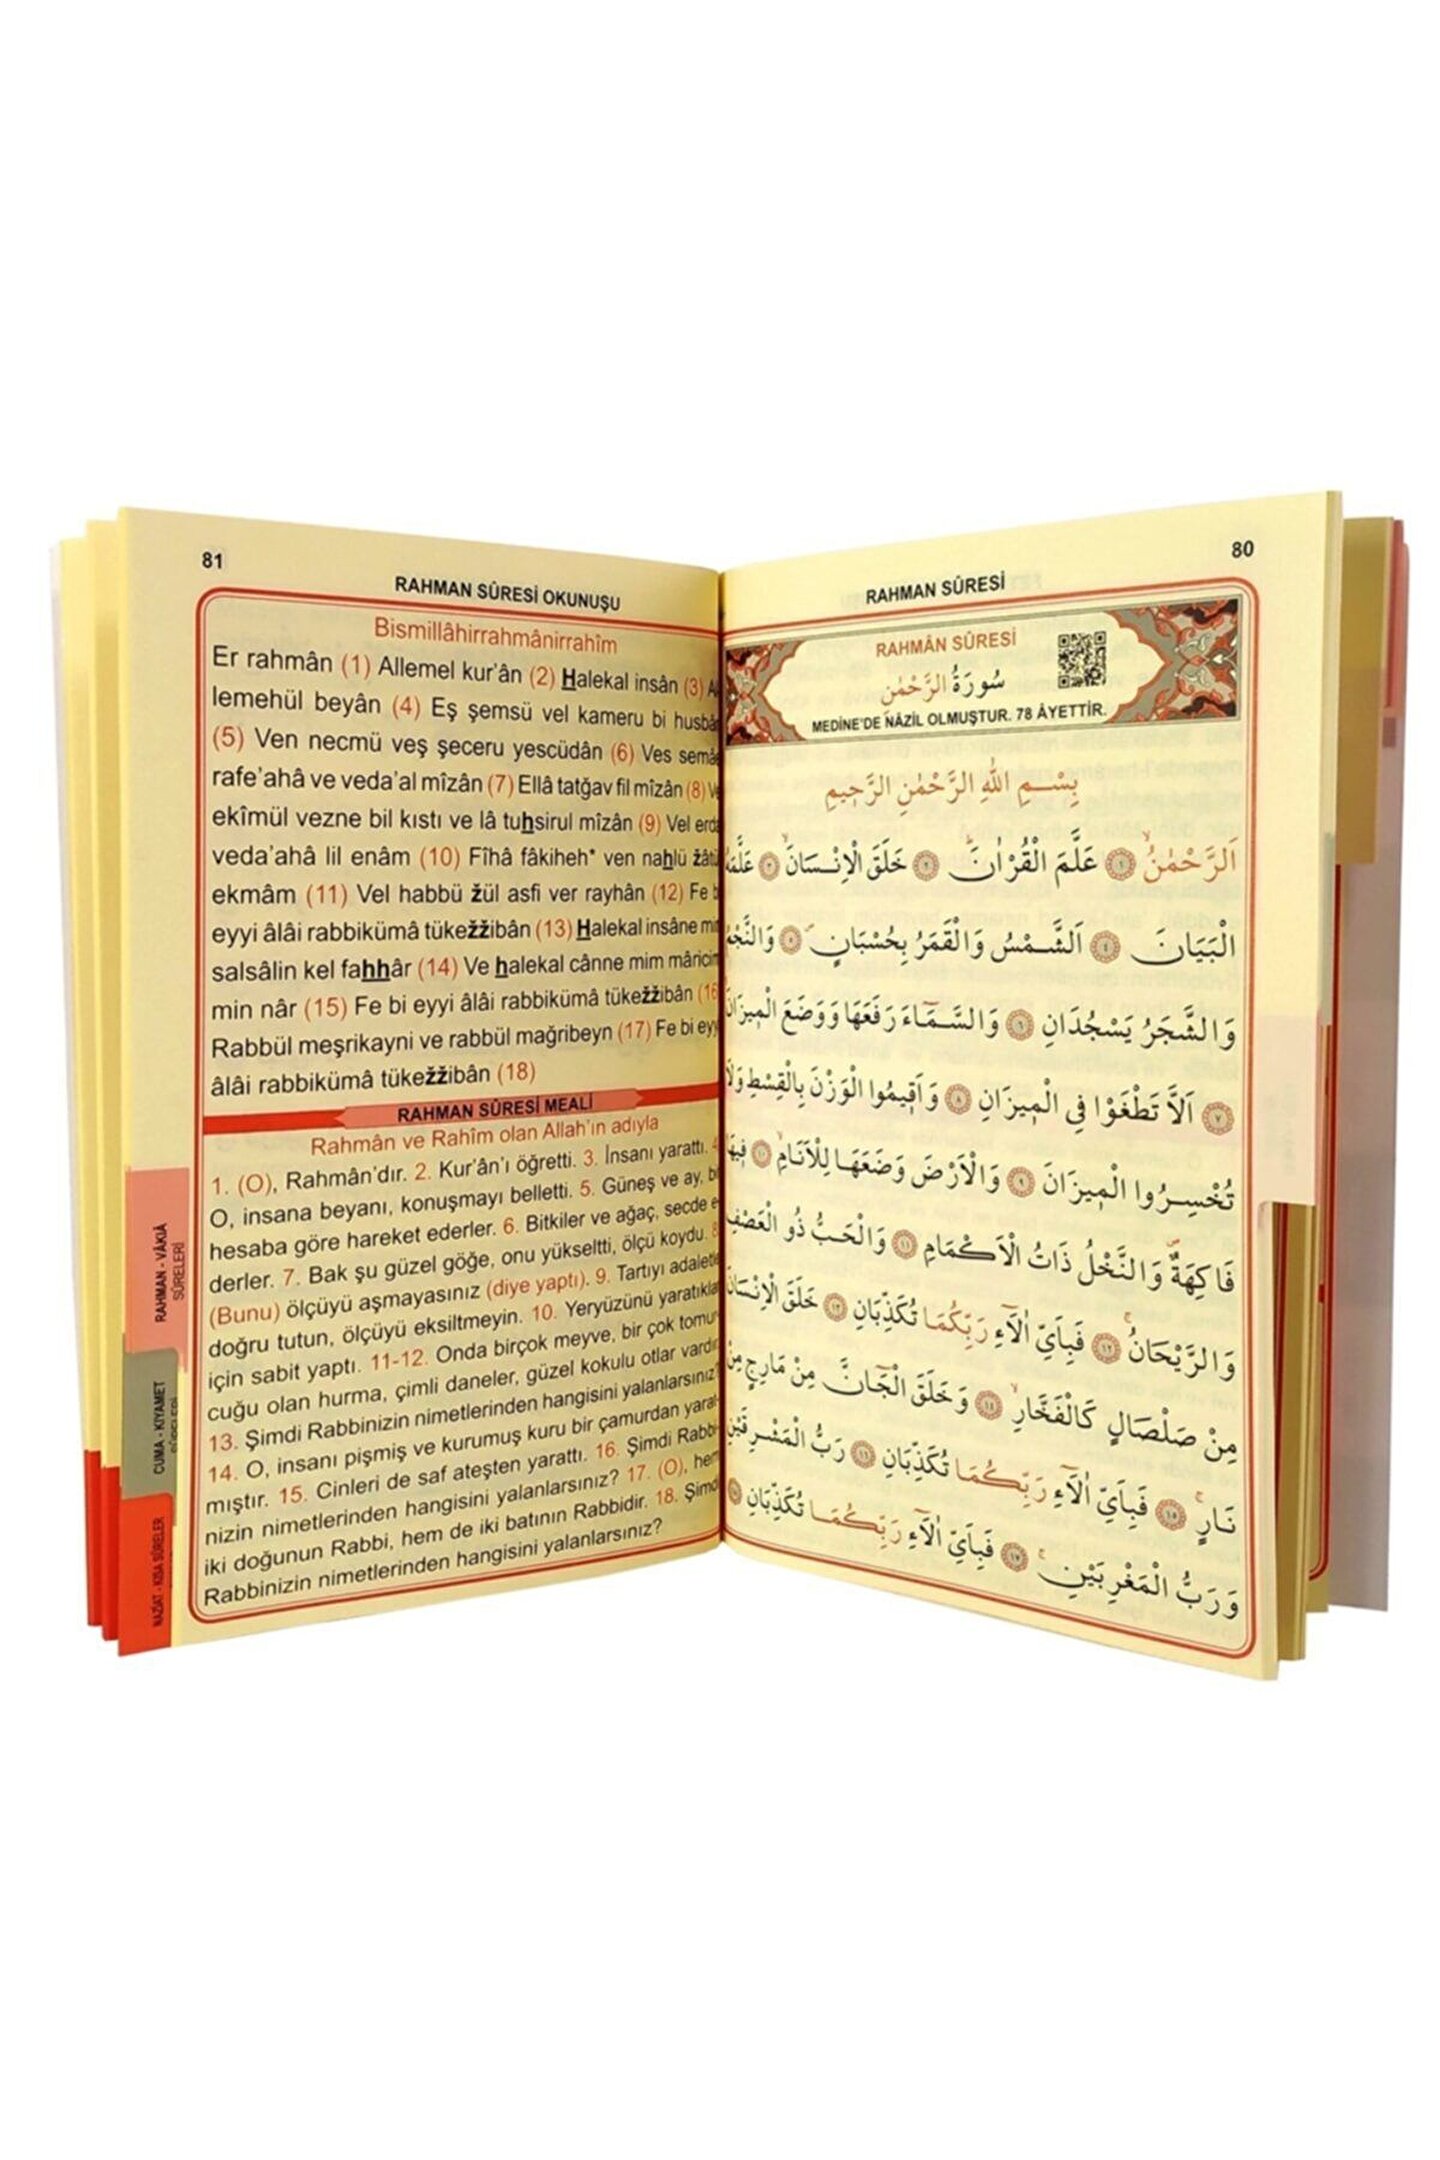 80
RAHMAN SÛRESİ
RAHMÂN SÛRESİ
سُورَةُ الرَّحْمٰنِ
MEDİNE'DE NÂZİL OLMUŞTUR. 78 ÂYETTİR.
بِسْــمِ اللّٰهِ الرَّحْمٰنِ الرَّحٖيمِ
اَلرَّحْمٰنُۙ ﴿١﴾ عَلَّمَ الْقُرْاٰنَۜ ﴿٢﴾ خَلَقَ الْاِنْسَانَۙ ﴿٣﴾ عَلَّمَهُ
الْبَيَانَ ﴿٤﴾ اَلشَّمْسُ وَالْقَمَرُ بِحُسْبَانٍۖ ﴿٥﴾ وَالنَّجْمُ
وَالشَّجَرُ يَسْجُدَانِ ﴿٦﴾ وَالسَّمَٓاءَ رَفَعَهَا وَوَضَعَ الْمٖيزَانَ
﴿٧﴾ اَلَّا تَطْغَوْا فِي الْمٖيزَانِ ﴿٨﴾ وَاَقٖيمُوا الْوَزْنَ بِالْقِسْطِ وَلَا
تُخْسِرُوا الْمٖيزَانَ ﴿٩﴾ وَالْاَرْضَ وَضَعَهَا لِلْاَنَامِۙ ﴿١٠﴾ فٖيهَا
فَاكِهَةٌ وَالنَّخْلُ ذَاتُ الْاَكْمَامِ ﴿١١﴾ وَالْحَبُّ ذُو الْعَصْفِ
وَالرَّيْحَانُۚ ﴿١٢﴾ فَبِاَيِّ اٰلَٓاءِ رَبِّكُمَا تُكَذِّبَانِ ﴿١٣﴾ خَلَقَ الْاِنْسَانَ
مِنْ صَلْصَالٍ كَالْفَخَّارِۙ ﴿١٤﴾ وَخَلَقَ الْجَٓانَّ مِنْ مَارِجٍ مِنْ
نَارٍۚ ﴿١٥﴾ فَبِاَيِّ اٰلَٓاءِ رَبِّكُمَا تُكَذِّبَانِ ﴿١٦﴾ رَبُّ الْمَشْرِقَيْنِ
وَرَبُّ الْمَغْرِبَيْنِۚ ﴿١٧﴾ فَبِاَيِّ اٰلَٓاءِ رَبِّكُمَا تُكَذِّبَانِ ﴿١٨﴾
81
RAHMAN SÛRESİ OKUNUŞU
Bismillâhirrahmânirrahîm
Er rahmân (1) Allemel kur'ân (2) Halekal insân (3) Al
lemehül beyân (4) Eş şemsü vel kameru bi husbân
(5) Ven necmü veş şeceru yescüdân (6) Ves semâe
rafe'ahâ ve veda'al mîzân (7) Ellâ tatğav fil mîzân (8) Ve
ekîmül vezne bil kıstı ve lâ tuhsirul mîzân (9) Vel erda
veda'ahâ lil enâm (10) Fîhâ fâkiheh* ven nahlü žâtü
ekmâm (11) Vel habbü žül asfi ver rayhân (12) Fe bi
eyyi âlâi rabbikümâ tükežžibân (13) Halekal insâne min
salsâlin kel fahhâr (14) Ve halekal cânne mim mâricim
min nâr (15) Fe bi eyyi âlâi rabbikümâ tükežžibân (16)
Rabbül meşrikayni ve rabbül mağribeyn (17) Fe bi eyyi
âlâi rabbikümâ tükežžibân (18)
RAHMAN SÛRESİ MEALİ
Rahmân ve Rahîm olan Allah'ın adıyla
1. (O), Rahmân'dır. 2. Kur'ân'ı öğretti. 3. İnsanı yarattı. 4.
O, insana beyanı, konuşmayı belletti. 5. Güneş ve ay, bir
hesaba göre hareket ederler. 6. Bitkiler ve ağaç, secde e-
derler. 7. Bak şu güzel göğe, onu yükseltti, ölçü koydu. 8.
(Bunu) ölçüyü aşmayasınız (diye yaptı). 9. Tartıyı adaletle
doğru tutun, ölçüyü eksiltmeyin. 10. Yeryüzünü yaratıklar
için sabit yaptı. 11-12. Onda birçok meyve, bir çok tomur-
cuğu olan hurma, çimli daneler, güzel kokulu otlar vardır.
13. Şimdi Rabbinizin nimetlerinden hangisini yalanlarsınız?
14. O, insanı pişmiş ve kurumuş kuru bir çamurdan yarat-
mıştır. 15. Cinleri de saf ateşten yarattı. 16. Şimdi Rabbi-
nizin nimetlerinden hangisini yalanlarsınız? 17. (O), hem
iki doğunun Rabbi, hem de iki batının Rabbidir. 18. Şimdi
Rabbinizin nimetlerinden hangisini yalanlarsınız?
RAHMAN - VÂKIÂ
SÛRELERİ
CUMA - KIYAMET
NAZİAT - KISA SÛRELER